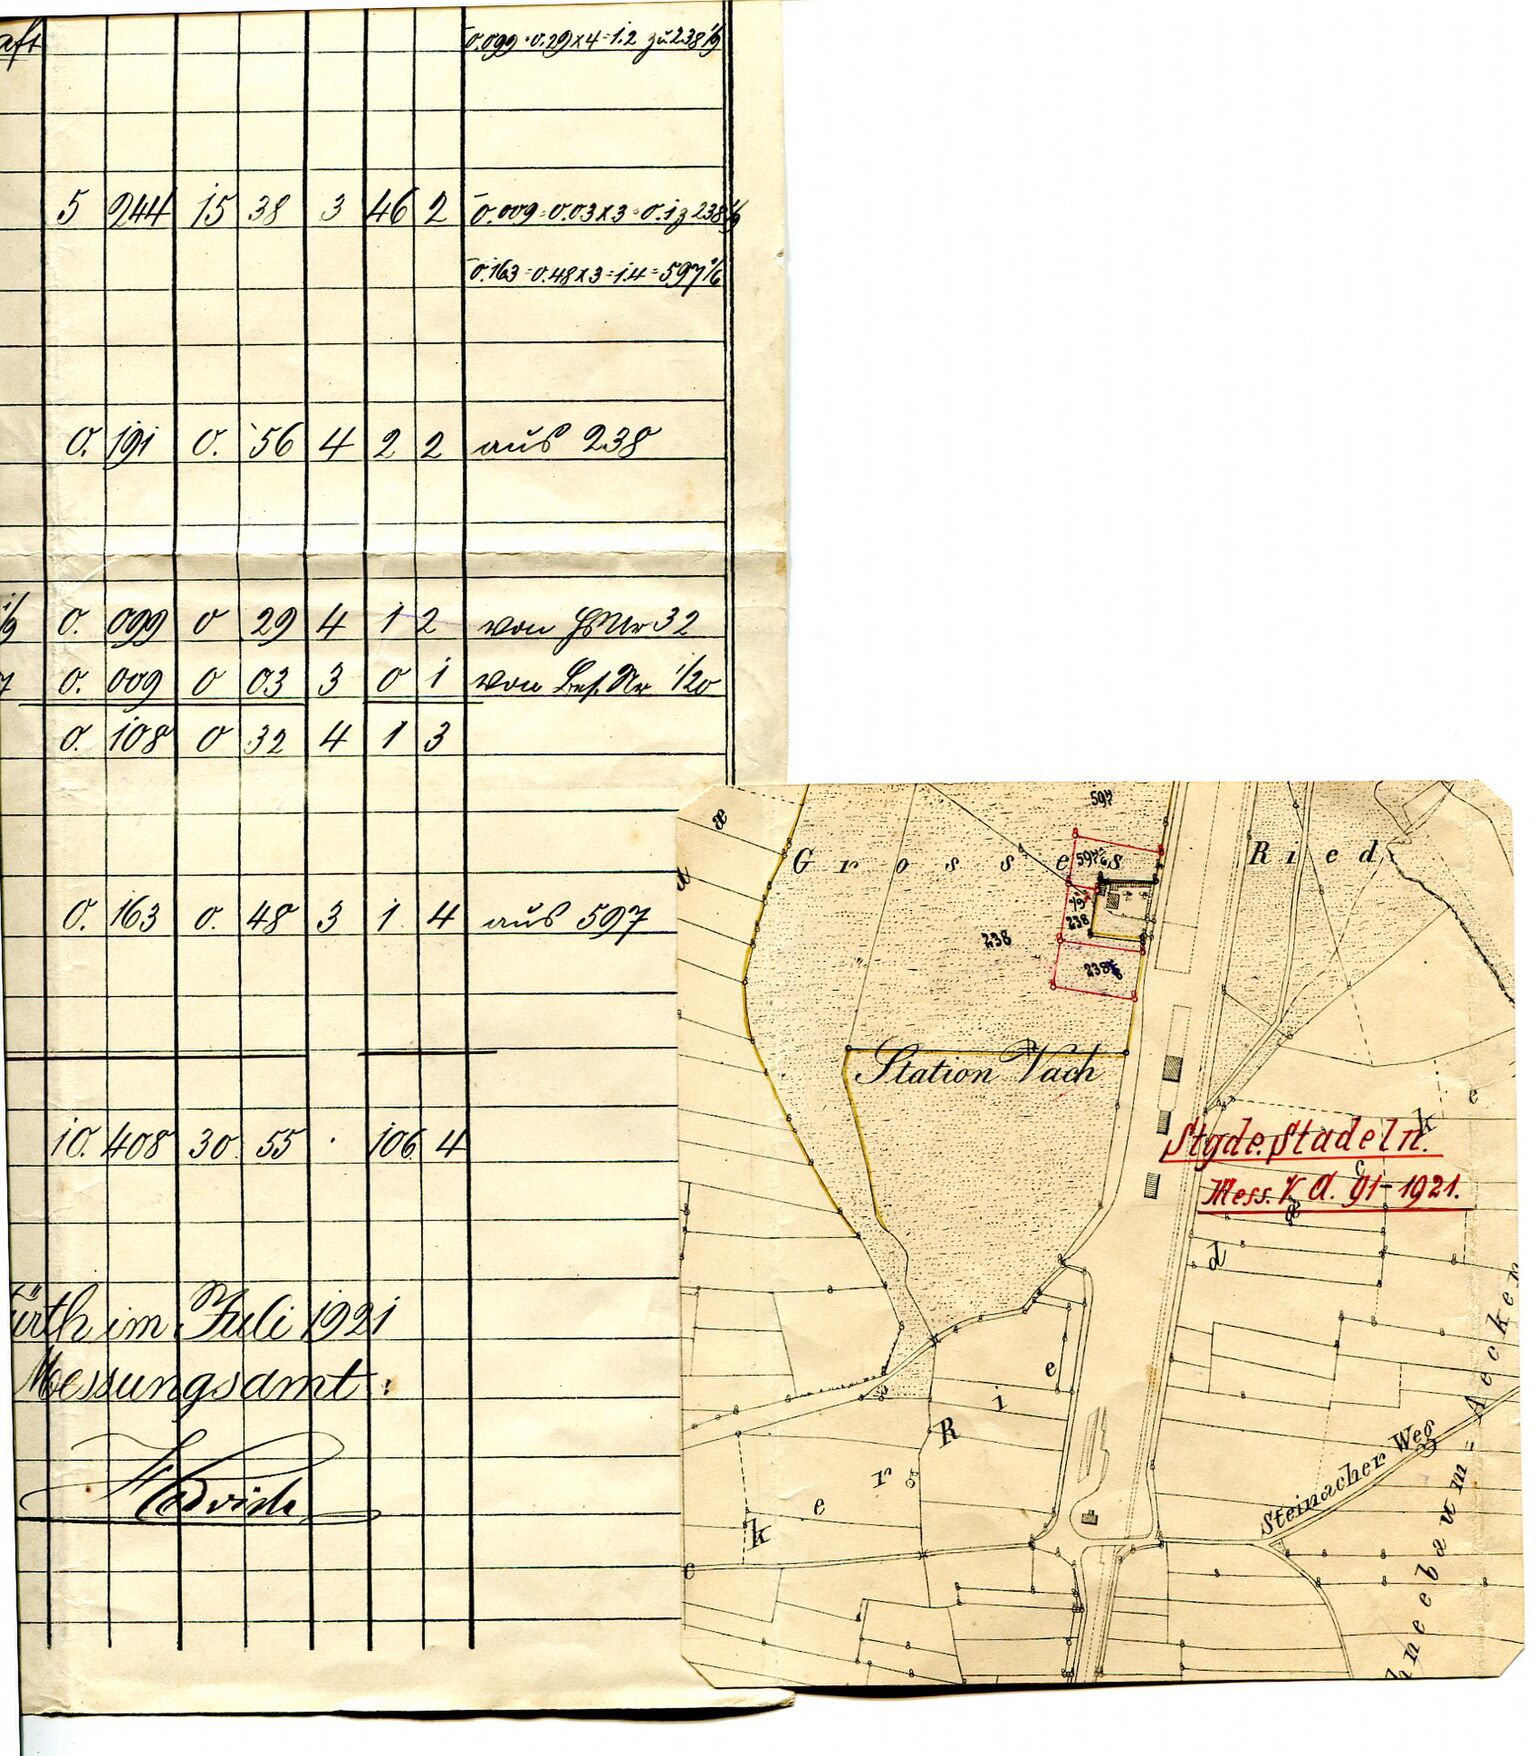 aft 0.099 = 0.29 x 4 = 1.2 zu 238 1/9
5 244 15 38 3 46 2 0.009 = 0.03 x 3 = 0.1 z 238 1/9
0.163 = 0.48 x 3 = 1.4 = 597 1/6
0. 191 0. 56 4 2 2 aus 238
1/9 0. 099 0 29 4 1 2 von HsNr 32
0. 009 0 03 3 0 1 von Bes. Nr 1/20
0. 108 0 32 4 1 3
0. 163 0. 48 3 1 4 aus 597
10. 408 30 55 . 106 4
ürth im Juli 1921
Messungsamt:
597
Grosses Ried
597 1/6
1/9
238
238
238
Station Vach
Stgde. Stadeln.
Mess. V. A. 91 - 1921.
Ried
Steinacher Weg
hneebaum-Aecker